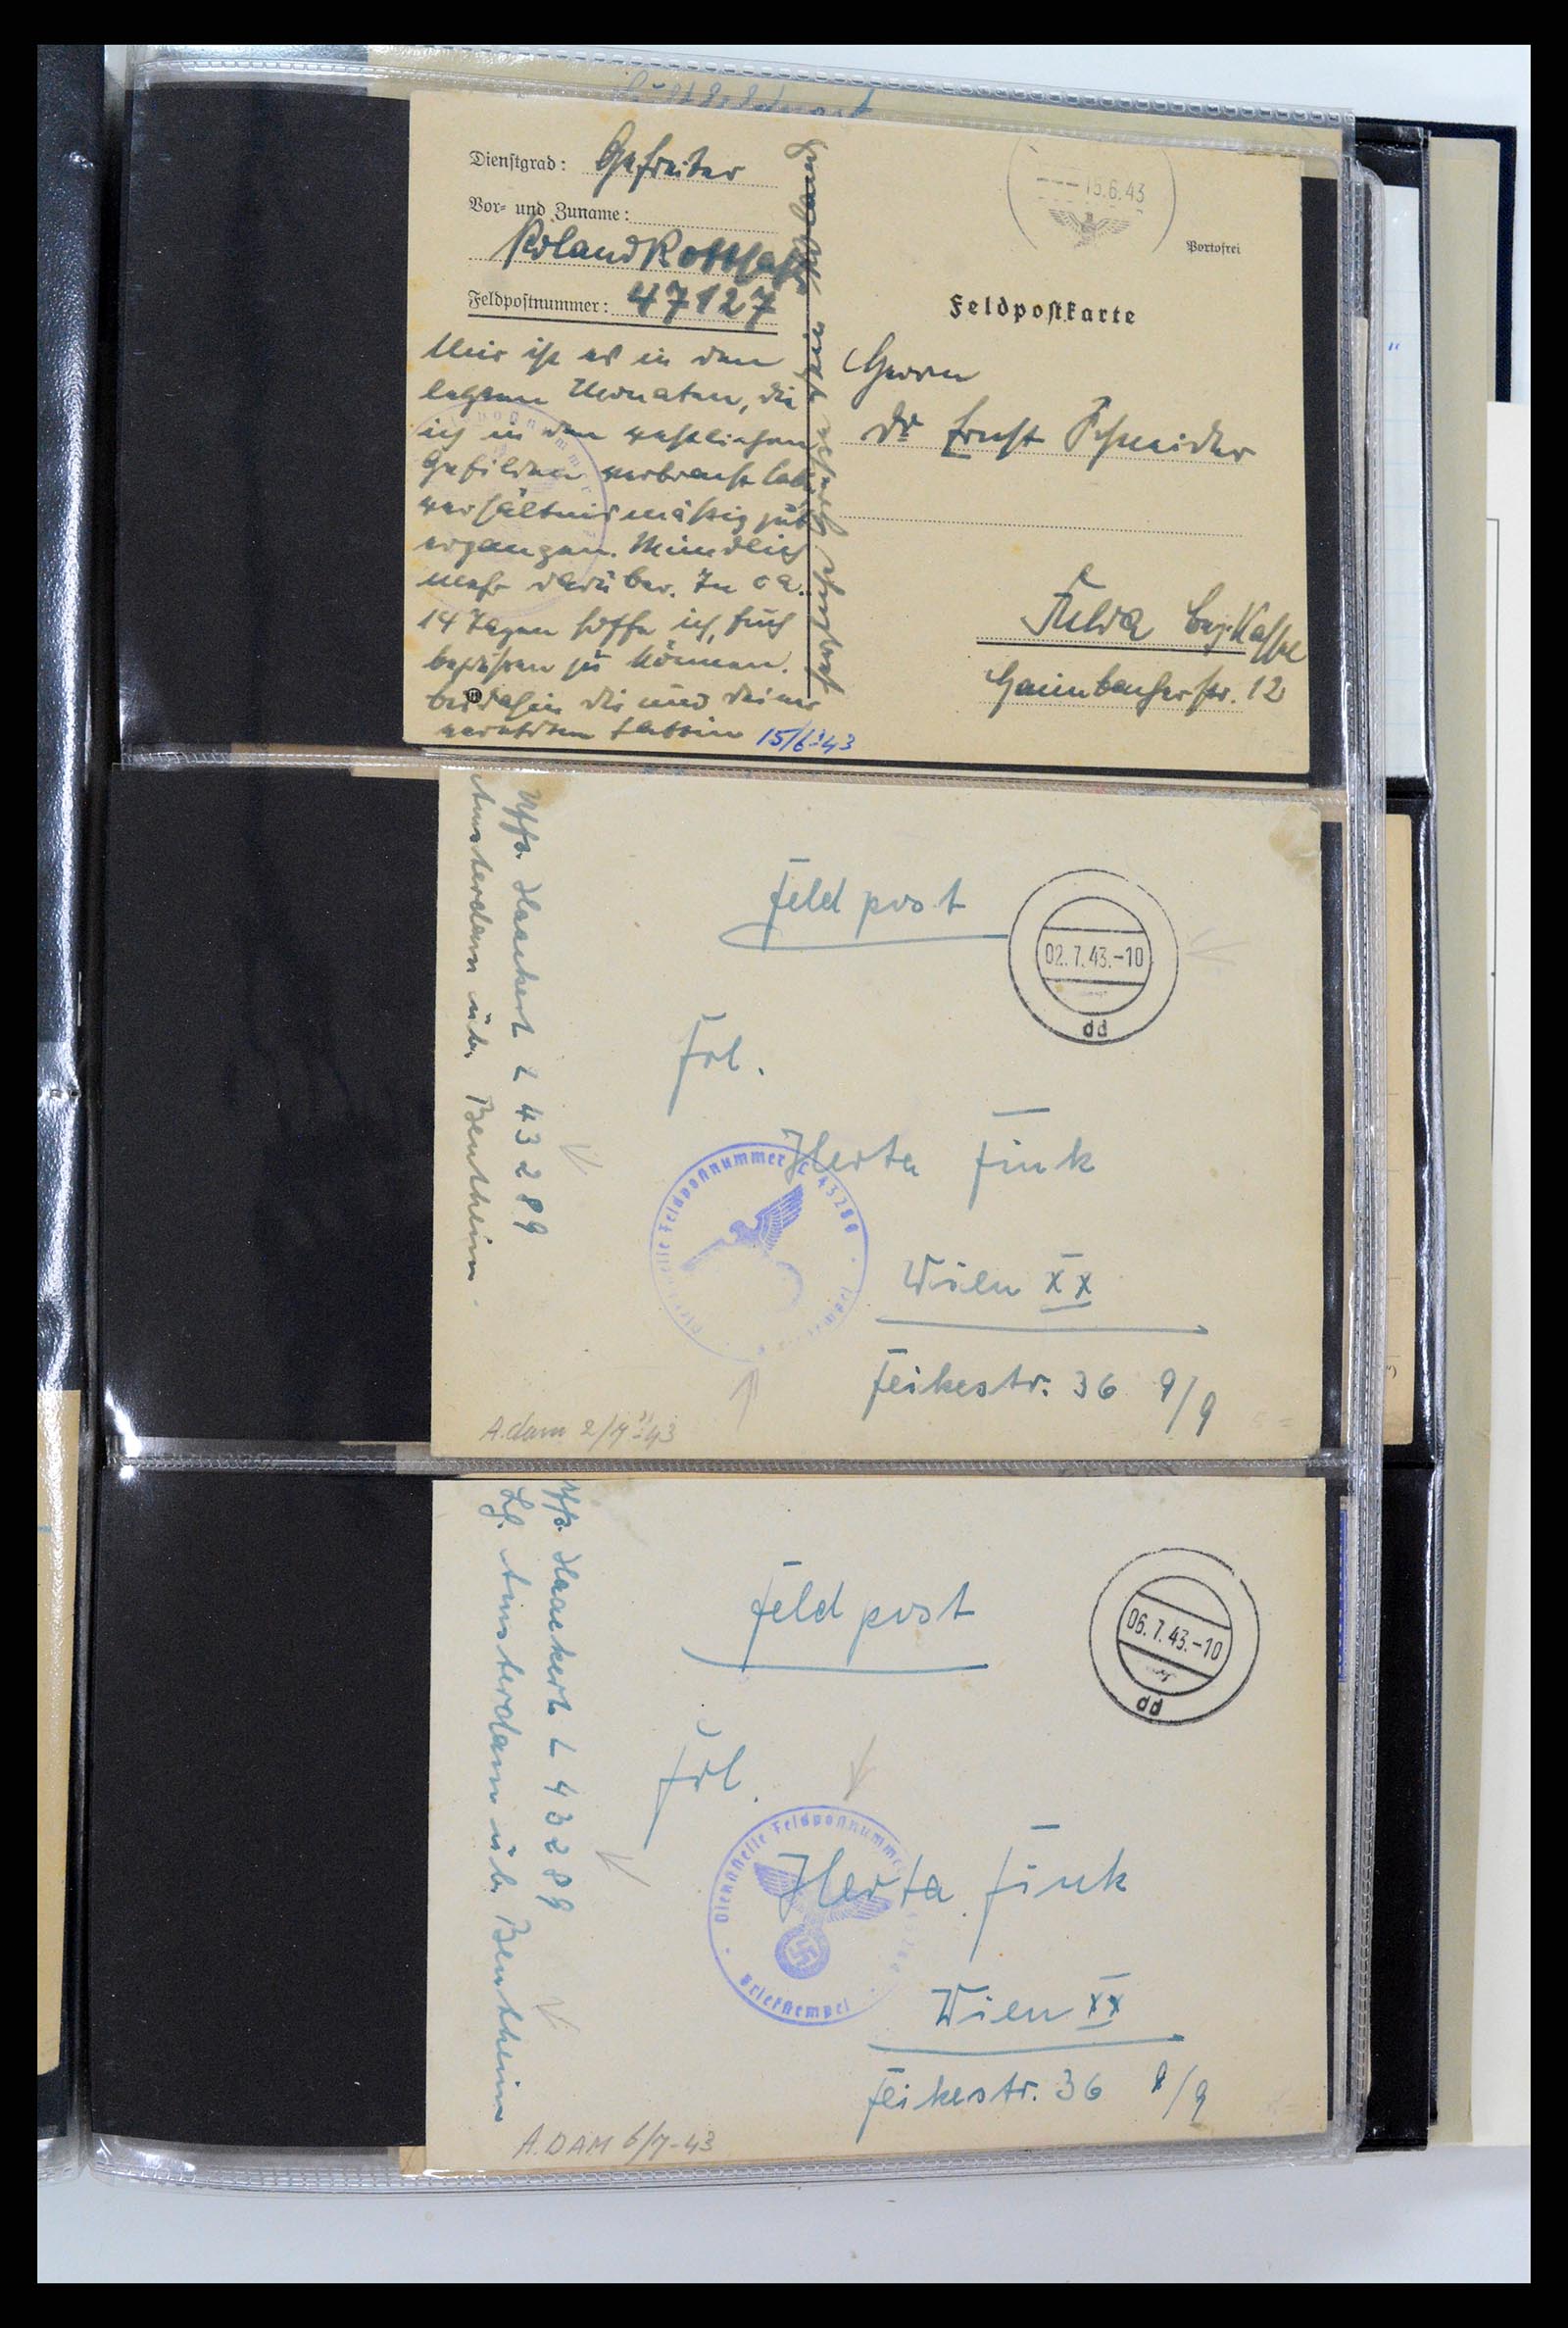 Dienstgrad: Gefreiter
Vor- und Zuname:
Roland
Feldpostnummer: 47127
Mir ist es in den
letzten Monaten, die
ich in den westlichen
Gefilden verbracht habe
verhältnismäßig gut
ergangen. Mündlich
mehr darüber. In ca.
14 Tagen hoffe ich, Euch
begrüßen zu können.
bis dahin dir und deiner
15/6-43
---15.6.43
Portofrei
Feldpostkarte
Herrn
Dr Ernst Schneider
Fulda Bez. Kassel
12
Feldpost
02.7.43.-10
dd
Frl.
Herta Fink
Wien XX
Feikestr. 36 9/9
Feldpostnummer L 43289
Uffz. Haackert L 43289
Amsterdam über Bentheim.
A.dam 2/7-43
Feldpost
06.7.43.-10
dd
Frl.
Herta Fink
Wien XX
Feikestr. 36 9/9
Dienststelle Feldpostnummer
Briefstempel
Uffz. Haackert L 43289
Lg. Amsterdam über Bentheim
A.DAM 6/7-43